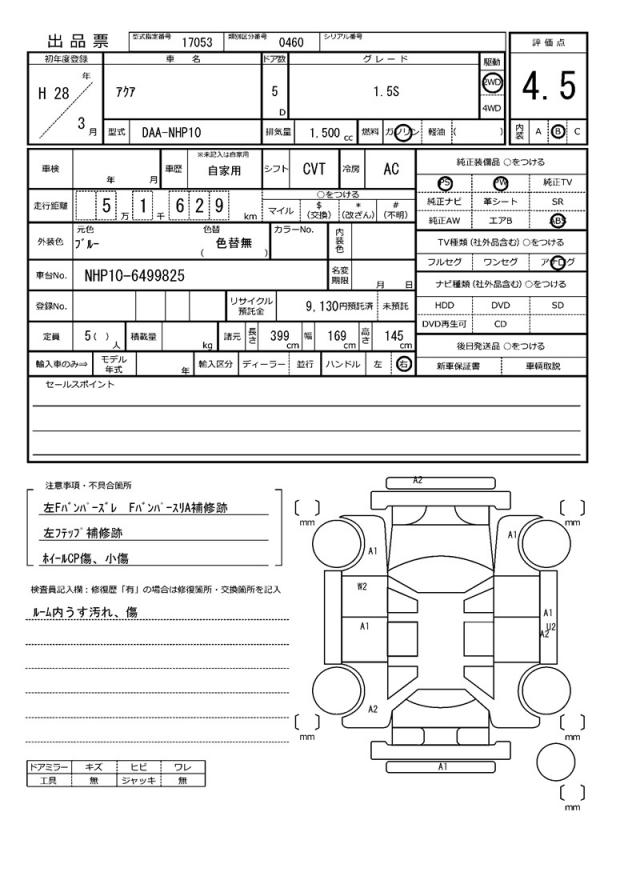 出品票 型式指定番号 17053 類別区分番号 0460 シリアル番号
初年度登録 車 名 ドア数 グレード 駆動 評価点
H 28 年 3 月 アクア 5 D 1.5S 2WD 4WD 4.5
型式 DAA-NHP10 排気量 1.500 cc 燃料 ガソリン 軽油 ( ) 内装 A B C
車検 年 月 車歴 ※未記入は自家用 自家用 シフト CVT 冷房 AC
走行距離 5 万 1 千 6 2 9 km ○をつける マイル $ (交換) * (改ざん) # (不明)
外装色 元色 ブルー 色替 ( 色替無 ) カラーNo. 内装色
車台No. NHP10-6499825 名変期限 月 日
登録No. リサイクル預託金 9,130円預託済 未預託
定員 5( ) 人 積載量 kg 諸元 長さ 399 cm 幅 169 cm 高さ 145 cm
輸入車のみ⇒ モデル年式 年 輸入区分 ディーラー 並行 ハンドル 左 右
純正装備品 ○をつける
PS PW 純正TV
純正ナビ 革シート SR
純正AW エアB ABS
TV種類 (社外品含む) ○をつける
フルセグ ワンセグ アナログ
ナビ種類 (社外品含む) ○をつける
HDD DVD SD
DVD再生可 CD
後日発送品 ○をつける
新車保証書 車輌取説
セールスポイント
注意事項・不具合箇所
左Fバンパーズレ FバンパースリA補修跡
左フテップ補修跡
ホイールCP傷、小傷
検査員記入欄：修復歴「有」の場合は修復箇所・交換箇所を記入
ルーム内うす汚れ、傷
ドアミラー キズ ヒビ ワレ
工具 無 ジャッキ 無
A2
mm mm
A1 A1
W2
A1 A1
U2
A2
A2
mm mm
A1
mm